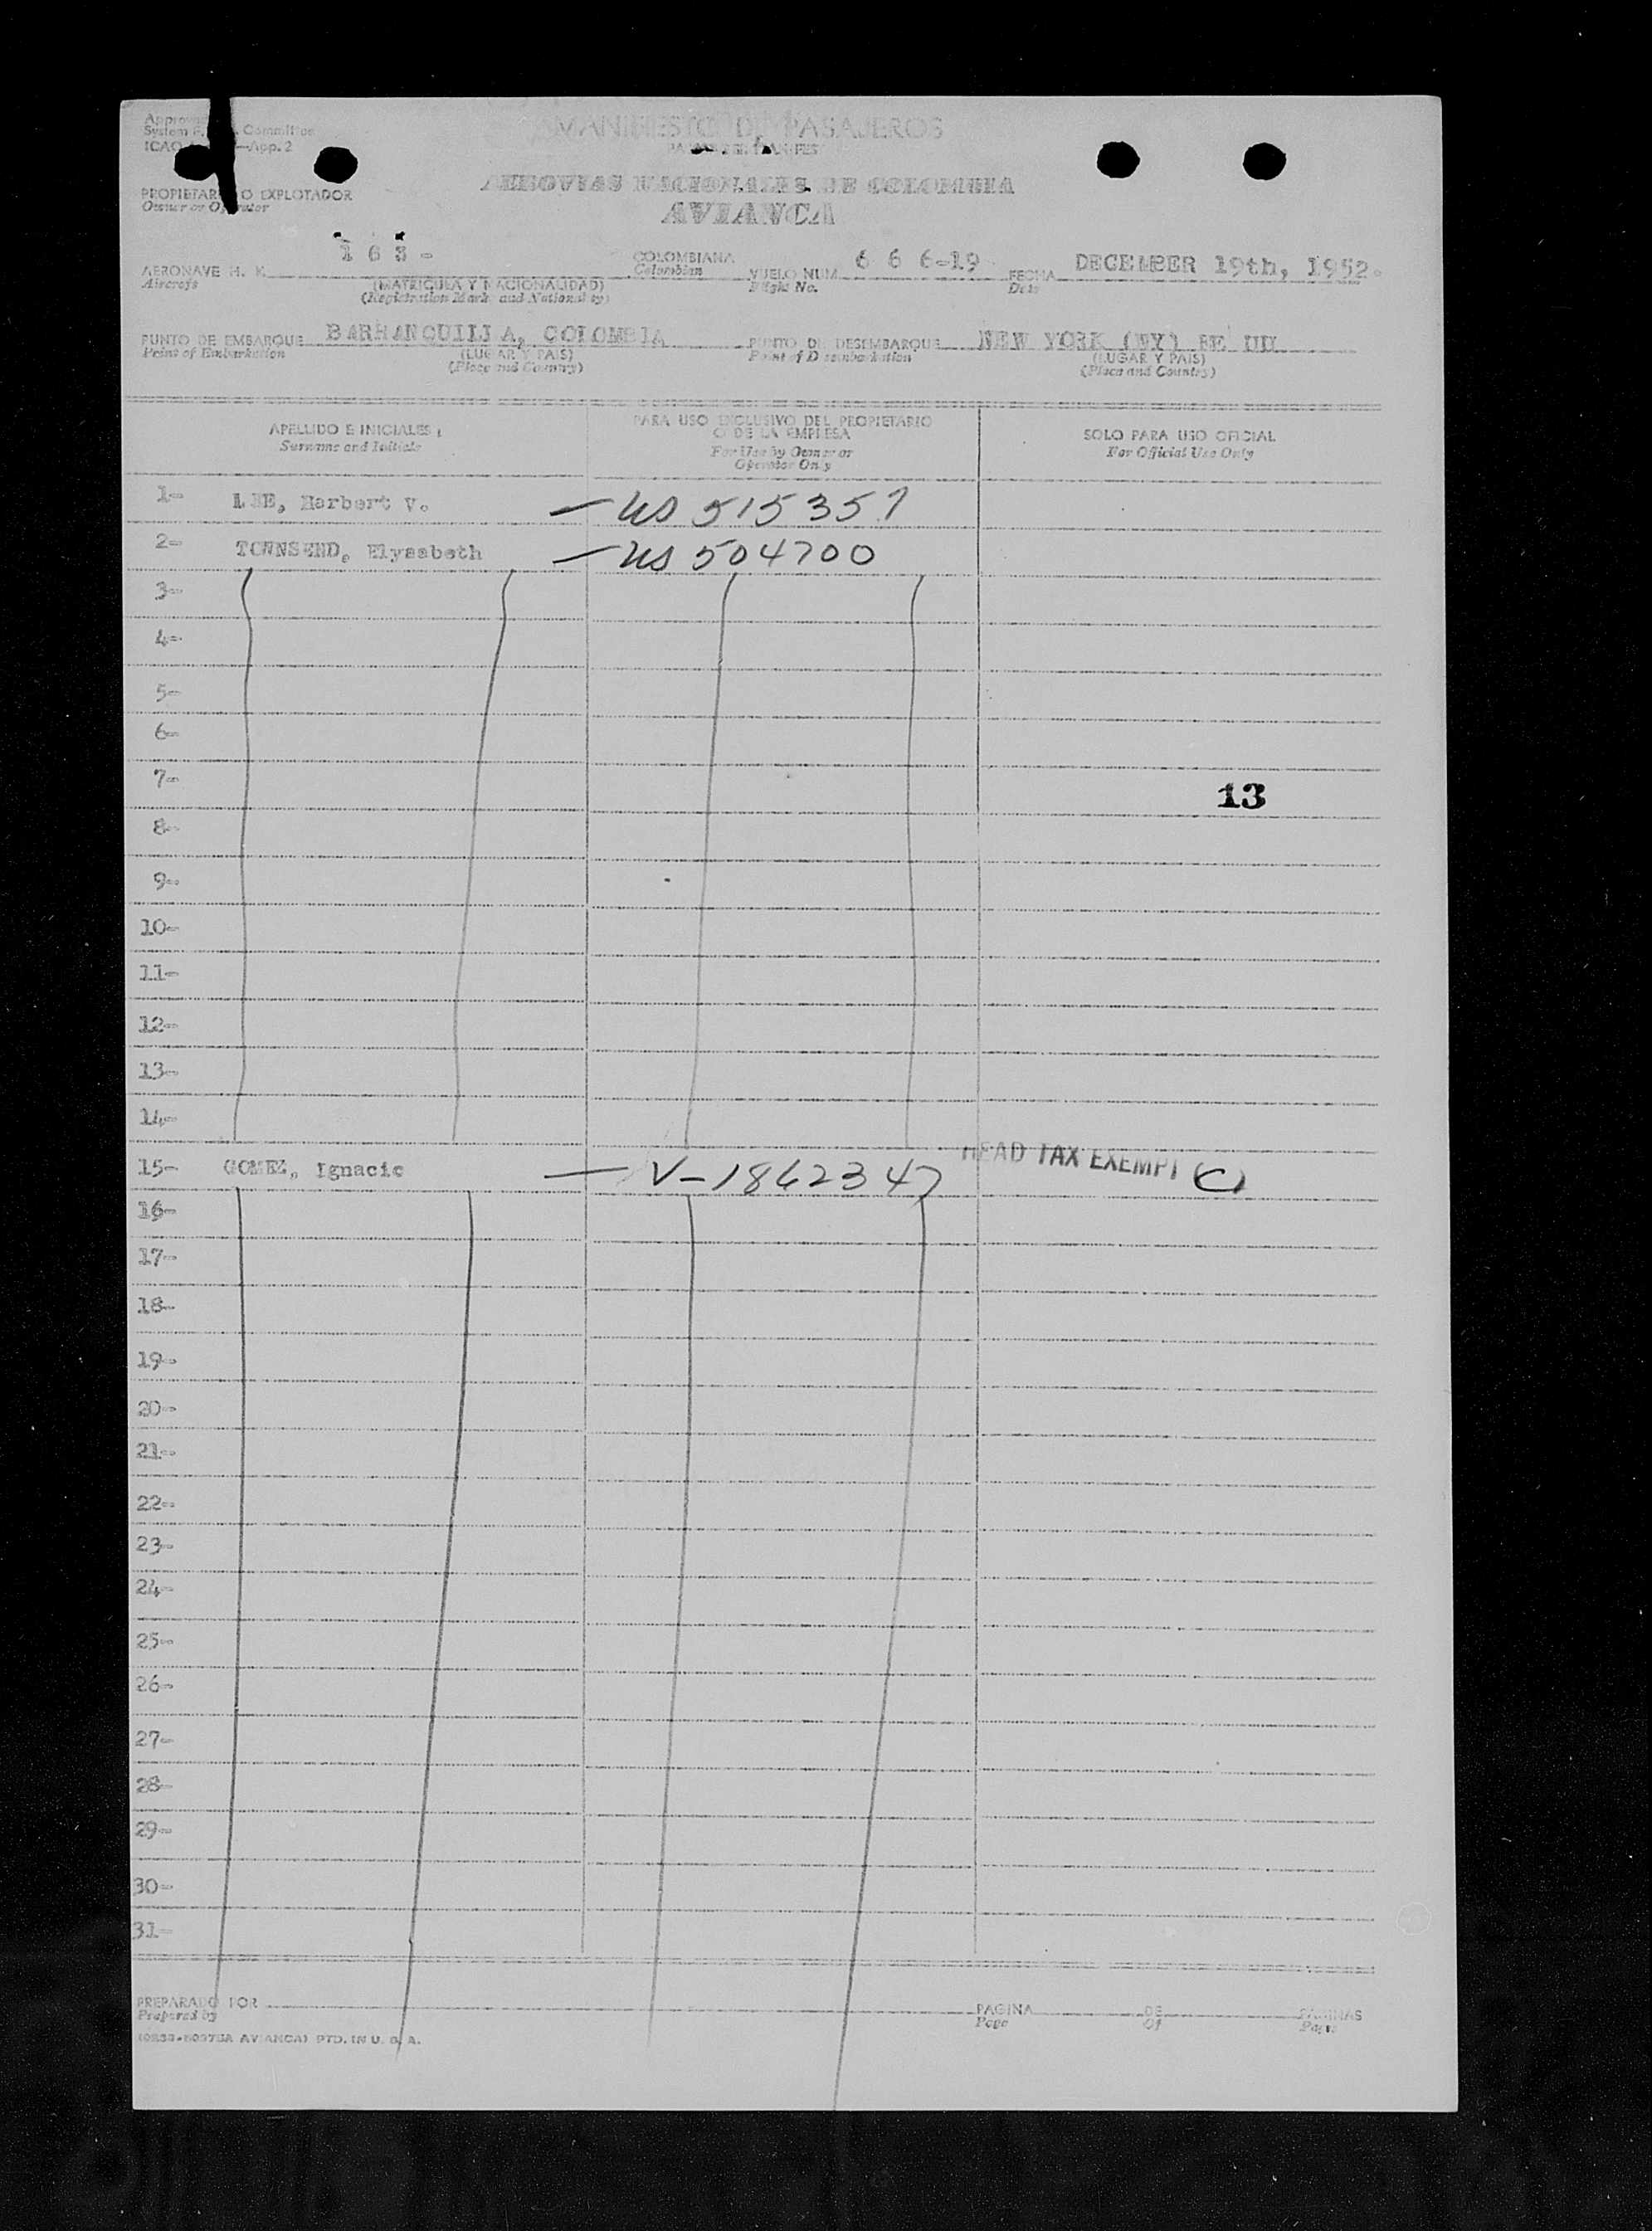 System
Committee
ICAO
App. 2
MANIFIESTO DE PASAJEROS
PROPIETARIO O EXPLOTADOR
Owner or Operator
AEROVIAS NACIONALES DE COLOMBIA
AVIANCA
AERONAVE H. K. 163- COLOMBIANA VUELO NUM. 666-19 FECHA DECEMBER 19th, 1952.
Aircraft (MATRICULA Y NACIONALIDAD) Colombian Flight No. Date
(Registration Mark and Nationality)
PUNTO DE EMBARQUE BARRANQUILLA, COLOMBIA PUNTO DE DESEMBARQUE NEW YORK (NY) EE UU
Point of Embarkation (LUGAR Y PAIS) Point of Disembarkation (LUGAR Y PAIS)
(Place and Country) (Place and Country)
APELLIDO E INICIALES PARA USO EXCLUSIVO DEL PROPIETARIO SOLO PARA USO OFICIAL
Surname and Initials O DE LA EMPRESA For Official Use Only
For Use by Owner or
Operator Only
1- LEE, Harbert V. — US 515357
2- TOWNSEND, Elysabeth — US 504700
3-
4-
5-
6-
7-
13
8-
9-
10-
11-
12-
13-
14-
15- GOMEZ, Ignacio — V-1862347 HEAD TAX EXEMPT C
16-
17-
18-
19-
20-
21-
22-
23-
24-
25-
26-
27-
28-
29-
30-
31-
PREPARADO POR PAGINA DE PAGINAS
Prepared by Page Of Pages
AVIANCA) PTD. IN U. S. A.